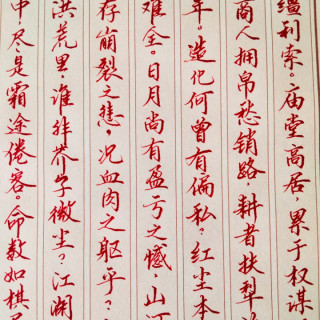 缰利索。庙堂高居，累于权谋
商人拥帛愁销路，耕者扶犁
年。造化何曾有偏私？红尘本
难全。日月尚有盈亏之憾，山河
存崩裂之悲，况血肉之躯乎？
洪荒里，谁非芥子微尘？江阔
中尽是霜途倦客。命数如棋